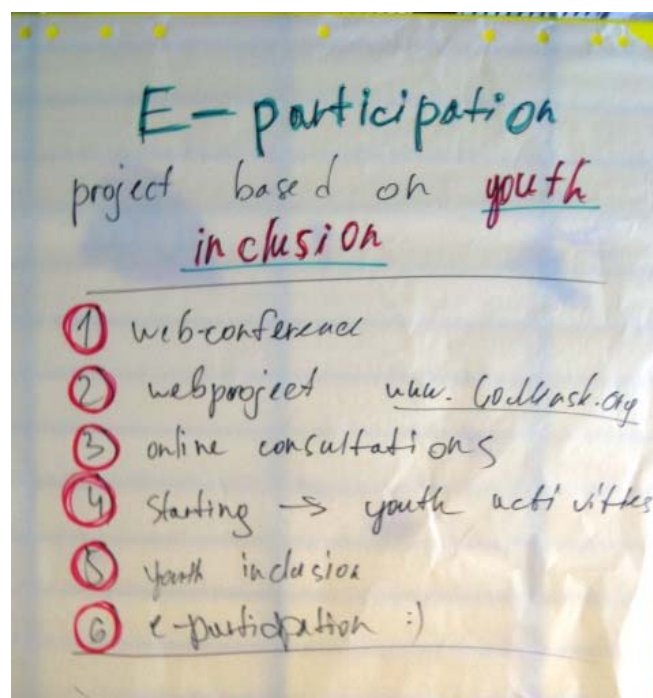 E-participation
project based on youth
inclusion
1 web-conference
2 webproject www.
3 online consultations
4 Starting → youth activittes
5 youth inclusion
6 e-participation :)